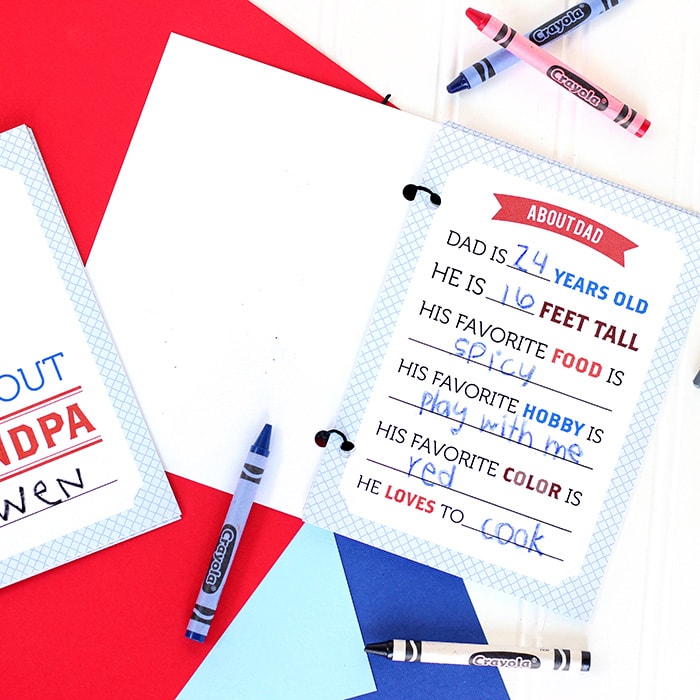 Crayola
Crayola
ABOUT DAD
DAD IS 24 YEARS OLD
HE IS 16 FEET TALL
HIS FAVORITE FOOD IS
spicy
HIS FAVORITE HOBBY IS
play with me
HIS FAVORITE COLOR IS
red
HE LOVES TO cook
OUT
NDPA
wen
Crayola
Crayola